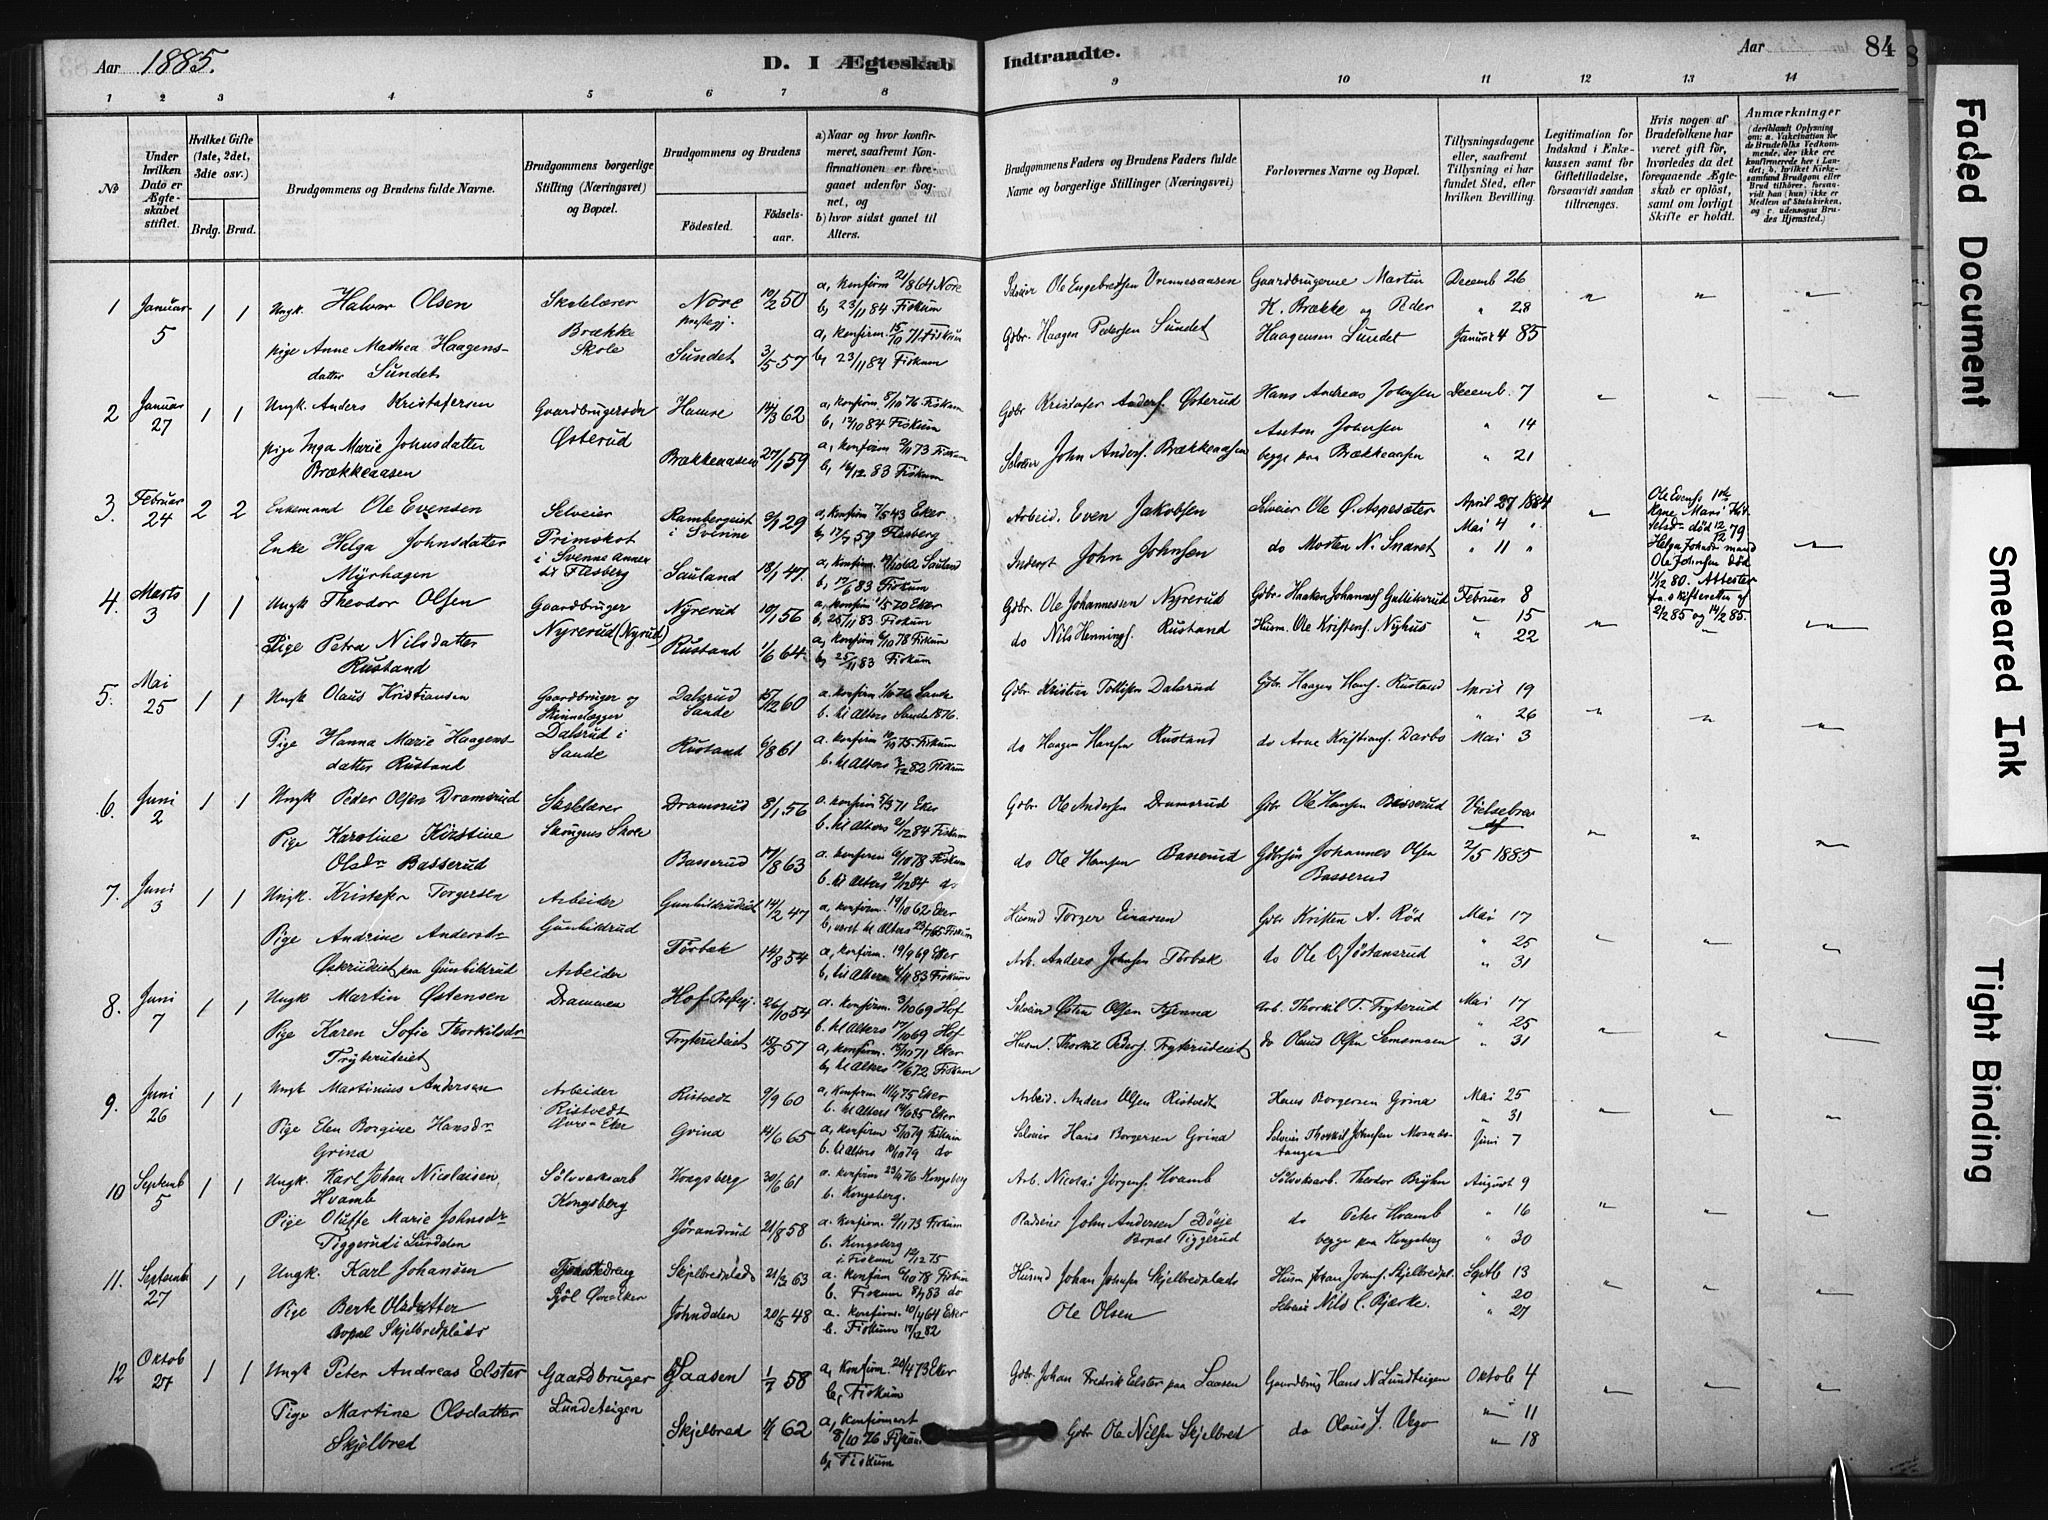 Aar 1885.
D. I Ægteskab Indtraadte.
Aar 84
1 2 3 4 5 6 7 8 9 10 11 12 13 14
№
Under hvilken Dato er Ægteskabet stiftet.
Hvilket Gifte (1ste, 2det, 3die osv.)
Brdg. Brud.
Brudgommens og Brudens fulde Navne.
Brudgommens borgerlige Stilling (Næringsvei) og Bopæl.
Brudgommens og Brudens
Födested. Födselsaar.
a) Naar og hvor konfirmeret, saafremt Konfirmationen er foregaaet udenfor Sognet, og
b) hvor sidst gaaet til Alters.
Brudgommens Faders og Brudens Faders fulde Navne og borgerlige Stillinger (Næringsvei)
Forlovernes Navne og Bopæl.
Tillysningsdagene eller, saafremt Tillysning ei har fundet Sted, efter hvilken Bevilling.
Legitimation for Indskud i Enkekassen samt for Giftetilladelse, forsaavidt saadan tiltrænges.
Hvis nogen af Brudefolkene har været gift för, hvorledes da det foregaaende Ægteskab er oplöst, samt om lovligt Skifte er holdt.
Anmærkninger
(deriblandt Oplysning om: a. Vakcination for de Brudefolks Vedkommende, der ikke ere konfirmerede her i Landet; b. hvilket Kirkesamfund Brudgom eller Brud tilhörer, forsaavidt han (hun) ikke er Medlem af Statskirken, og c. udensogns Brudes Hjemsted.)
1 Januar 5 1 1 Ungk. Halvor Olsen Skolelærer Brække Skole Nore prestegj. 10/2 50 a, konfirm 21/8 64 Nore
b, 23/11 84 Fiskum
Ole Engebretsen Gaardbrugerne Martin H. Brække og Peder Haagensen Sundet Decemb 26 " 28 Januar 4 85
pige Anne Mathea Haagensdatter Sundet Sundet 3/5 57 a, konfirm. 15/10 71 Fiskum
b, 23/11 84 Fiskum
Gdbr. Haagen Pedersen Sundet
2 Januar 27 1 1 Ungk. Anders Kristofersen Gaardbrugersøn Østerud 14/3 62 a, konfirm. 8/10 76 Fiskum
b, 12/10 84 Fiskum
Gdbr Kristofer Anders. Østerud Hans Andreas Johnsen Anton Johnsen begge paa Brækkeaasen Decemb. 7 " 14 " 21
pige Inga Marie Johnsdatter Brækkeaasen Brækkeaasen 27/1 59 a, konfirm 2/11 73 Fiskum
b, 16/12 83 Fiskum
Selveier John Anders. Brækkeaasen
3. Februar 24 2 2 Enkemand Ole Evensen Selveier Primskot i Svenne Annex til Flesberg Rambergeiet i Svenne 3/1 29 a, konfirm 7/5 43 Eker
b, 17/7 59 Flesberg
Arbeid. Even Jakobsen Selveier Ole Ø. Aspesæter do Morten N. Snaret April 27 1884 Mai 4 " " 11 "
Enke Helga Johnsdatter Myrhagen Sauland 18/1 47. Sauland
Inderst John Johnsen
Ole Evens. 1ste Kone Mari død 12/12 79 Helga Johnsdr mand Ole Johnsen død 11/12 80. Attester fra skifteretten af 2/2 85 og 14/2 85.
4. Marts 3 1 1 Ungk Theodor Olsen Gaardbruger Nyrerud (Nyrud) Nyrerud 10/1 56 a, konfirm. 1/5 70 Eker
b, 25/11 83 Fiskum
Gdbr. Ole Johannesen Nyrerud Gdbr. Haaken Johannes. Gulliksrud Husm. Ole Kristens. Nyhus Februar 8 " 15 " 22
Pige Petra Nilsdatter Rustand Rustand 1/6 64. a, konfirm 6/10 78 Fiskum
b, 25/11 83 Fiskum
do Nils Hennings. Rustand
5. Mai 25 1 1 Ungk Olaus Kristiansen Gaardbruger og Dalsrud i Sande Dalsrud Sande 15/12 60 a. konfirm 1/10 76 Sande
b. til Alters Sande 1876.
Gdbr Kristian Tollefsen Dalsrud Gdbr. Haagen Hans. Rustand do Arne Kristians. Darbo April 19 " 26 Mai 3
Pige Hanna Marie Haagensdatter Rustand Rustand 6/8 61 a. konfirm 10/10 75 Fiskum
b. til Alters 3/12 82 Fiskum
do Haagen Hansen Rustand
6. Juni 2 1 1 Ungk Peder Olsen Dramsrud Skolelærer Skougens Skole Dramsrud 8/1 56 a. konfirm 5/3 71 Eker
b. til Alters 21/12 84 Fiskum
Gdbr. Ole Andersen Dramsrud Gdbr Ole Hansen Basserud Gdbrsøn Johannes Olsen Basserud Vielsebrev af 2/5 1885
Pige Karoline Kristine Olsdr Basserud Basserud 17/8 63 a. konfirm 6/10 78 Fiskum
b. til Alters 21/12 84 do
do Ole Hansen Basserud
7. Juni 3 1 1 Ungk. Kristofer Torgersen Arbeider Gunhildrud Gunhildrudeiet 14/2 47 a. konfirm. 14/10 62 Eker
b, været til Alters 23/7 65 Fiskum
Husmd Torger Einarsen Gdbr Kristen A. Rød do Ole O. Jøstansrud Mai 17 " 25 " 31
Pige Andrine Andersdr Østerudeiet paa Gunhildrud Torbek 14/8 54 a, konfirm. 19/9 69 Eker
b, til Alters 4/11 83 Fiskum
Arb. Anders Johnsen Torbek
8. Juni 7 1 1 Ungk Martin Østensen Arbeider Drammen Hof Prestegj. 26/10 54 a. konfirm. 3/10 69 Hof
b. til Alters 17/10 69 Hof
Selveier Østen Olsen Arb. Thorkil T. Fryterud do Olaus Olsen Semsmoen Mai 17 " 25 " 31
Pige Karen Sofie Thorkilsdr Fryterudeiet Fryterudeiet 15/5 57 a, konfirm. 15/10 71 Eker
b, til Alters 17/6 72 Fiskum
Husm. Thorkil Peders. Fryterudeiet
9. Juni 26 1 1 Ungk Martinius Andersen Arbeider Ristvedt Øvre-Eker Ristvedt 9/9 60 a, Konfirm 11/4 75 Eker
b. til Alters 14/6 85 Eker
Arbeid. Anders Olsen Ristvedt Hans Borgersen Grina Selveier Thorkil Johnsen Mai 25 " 31 Juni 7
Pige Elen Borgine Hansdr Grina Grina 14/6 65 a, konfirm. 5/10 79 Fiskum
b. til Alters 19/10 79 do
Selveier Hans Borgersen Grina
10 Septemb 5 1 1 Ungk. Karl Johan Nicolaisen Hvamb Sölvverksarb Kongsberg Kongsberg 30/6 61 a. konfirm 23/4 76 Kongsberg
b. Kongsberg.
Arb. Nicolai Jørgens. Hvamb Sölvvksarb. Theodor do Peter Hvamb begge paa Kongsberg August 9 " 16 " 30
Pige Oluffe Marie Johnsdr Tiggerud i Lurdalen Jørandrud 21/8 58 a. Konfirm. 2/11 73 Fiskum
b. Kongsberg i Fiskum 12/12 75
Pladseier John Andersen Døsje Bopæl Tiggerud
11. Septemb 27 1 1 Ungk. Karl Johansen Tjenestedreng Øvre Eker Skjelbredplads 21/2 63 a. konfirm 6/10 78 Fiskum
b. Fiskum 8/7 83 do
Husmd Johan Johnsen Skjelbredplads Husm Johan Johns. Skjelbredpl. Selveier Nils C. Bjerke. Septb 13 " 20 " 27
Pige Berte Olsdatter bopæl Skjelbredplads Johndalen 20/5 48 a. konfirm. 10/4 64 Eker
b. Fiskum 17/12 82
Ole Olsen
12 Oktob 27 1 1 Ungk Peter Andreas Elster Gaardbruger Lundeteigen Saasen 1/7 58 a, konfirm. 20/4 73 Eker
b, Fiskum
Gdbr. Johan Fredrik Elster paa Saasen Gaardbrug Hans N Lundteigen do Olaus J. Vego Oktob 4 " 11 " 18
Pige Martine Olsdatter Skjelbred Skjelbred 62 a, konfirmert 8/10 76 Fiskum
b, Fiskum
Gdbr Ole Nilsen Skjelbred
Faded Document
Smeared Ink
Tight Binding